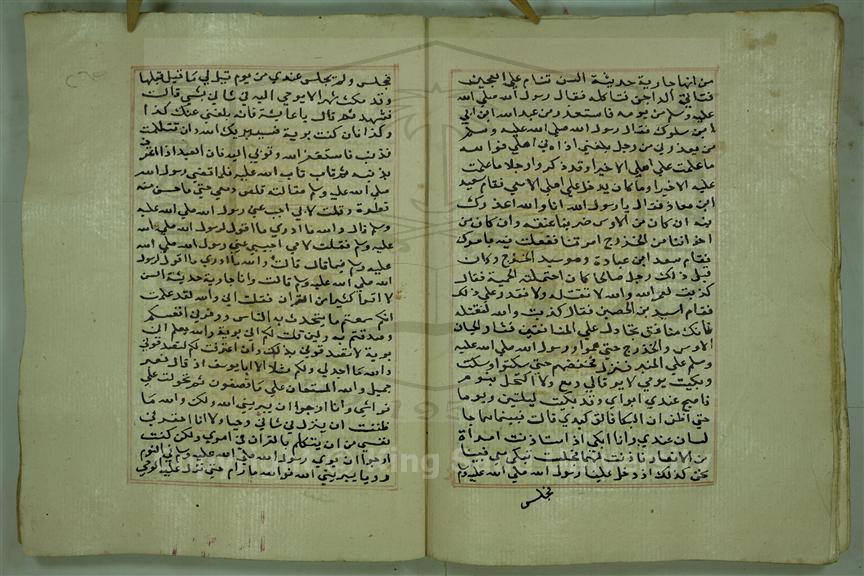 من انها جارية حديثة السن تنام علي العجين
فتاتي الداجن فتاكله فقال رسول الله صلي الله
عليه وسلم من يومه فاستعذر من عبد الله ابن ابي
ابن سلول فقال رسول الله صلي الله عليه وسلم
من يعذرني من رجل بلغني اذاه في اهلي فوالله
ما علمت علي اهلي الا خيرا وقد ذكروا رجلا ما علمت
عليه الا خيرا وما كان يدخل علي اهلي الا معي فقام سعيد
ابن معاذ فقال يا رسول الله انا والله اعذرك
منه ان كان من الاوس ضربنا عنقه وان كان من
اخواننا من الخزرج امرتنا ففعلنا فيه بامرك
فقام سعد ابن عبادة وهو سيد الخزرج وكان
قبل ذلك رجل صالحا كان احتملته الحمية فقال
كذبت لعمر الله والله لا تقتله ولا تقدر علي ذلك
فقام اسيد بن الحصين فقال كذبت والله لنقتلنه
فانك منافق تجادل علي المنافقين فثار الحيان
الاوس والخزرج حتي هموا ورسول الله صلي الله عليه
وسلم علي المنبر فنزل فخفضهم حتي سكتوا وسكت
وبكيت يومي لا يرقا لي دمع ولا اكتحل بنوم
فاصبح عندي ابواي وقد بكيت ليلتين ويوما
حتي اظن ان البكا فالق كبدي قالت فبينما هما جا
لسان عندي وانا ابكي اذ استاذنت امراة
من الانصار فاذنت لها فجلست تبكي معي فبينا
نحن كذلك اذ دخل علينا رسول الله صلي الله عليه وسلم
فجلس
فجلس ولم يجلس عندي من يوم قيل لي ما قيل قبلها
وقد مكث شهرا لا يوحي اليه في شاني بشي قالت
فتشهد ثم قال يا عايشة فانه بلغني عنك كذا
وكذا فان كنت برية فسيبريك الله وان كنت الممت
بذنب فاستغفر الله وتوبي اليه فان العبد اذا اعترف
بذنبه ثم تاب تاب الله عليه فلما قضي رسول الله
صلي الله عليه وسلم مقالته قلص دمعي حتي ما احس منه
قطرة وقلت لابي اجب عني رسول الله صلي الله عليه
وسلم قال والله ما ادري ما اقول لرسول الله صلي الله
عليه وسلم فقلت لامي اجيبي عني رسول الله صلي الله
عليه وسلم فيما قال قالت والله ما ادري ما اقول لرسول
الله صلي الله عليه وسلم قالت وانا جارية حديثة السن
لا اقرا كثيرا من القران فقلت اني والله لقد علمت
انكم سمعتم ما يتحدث به الناس ووقر في انفسكم
وصدقتم به ولين قلت لكم اني برية والله يعلم اني
برية لا تصدقوني بذلك وان اعترفت لكم لتصدقوني
والله ما اجد لي ولكم مثلا الا ابا يوسف اذ قال فصبر
جميل والله المستعان علي ما تصفون ثم تحولت علي
فراشي وانا ارجوا ان يبريني الله ولكن والله ما
ظننت ان ينزل في شاني وحيا ولا انا احقر في
نفسي من ان يتكلم بالقران في امري ولكن كنت
ارجوا ان يري رسول الله صلي الله عليه وسلم في النوم
رويا يبريني الله فوالله ما رام حتي نزل عليه الوحي